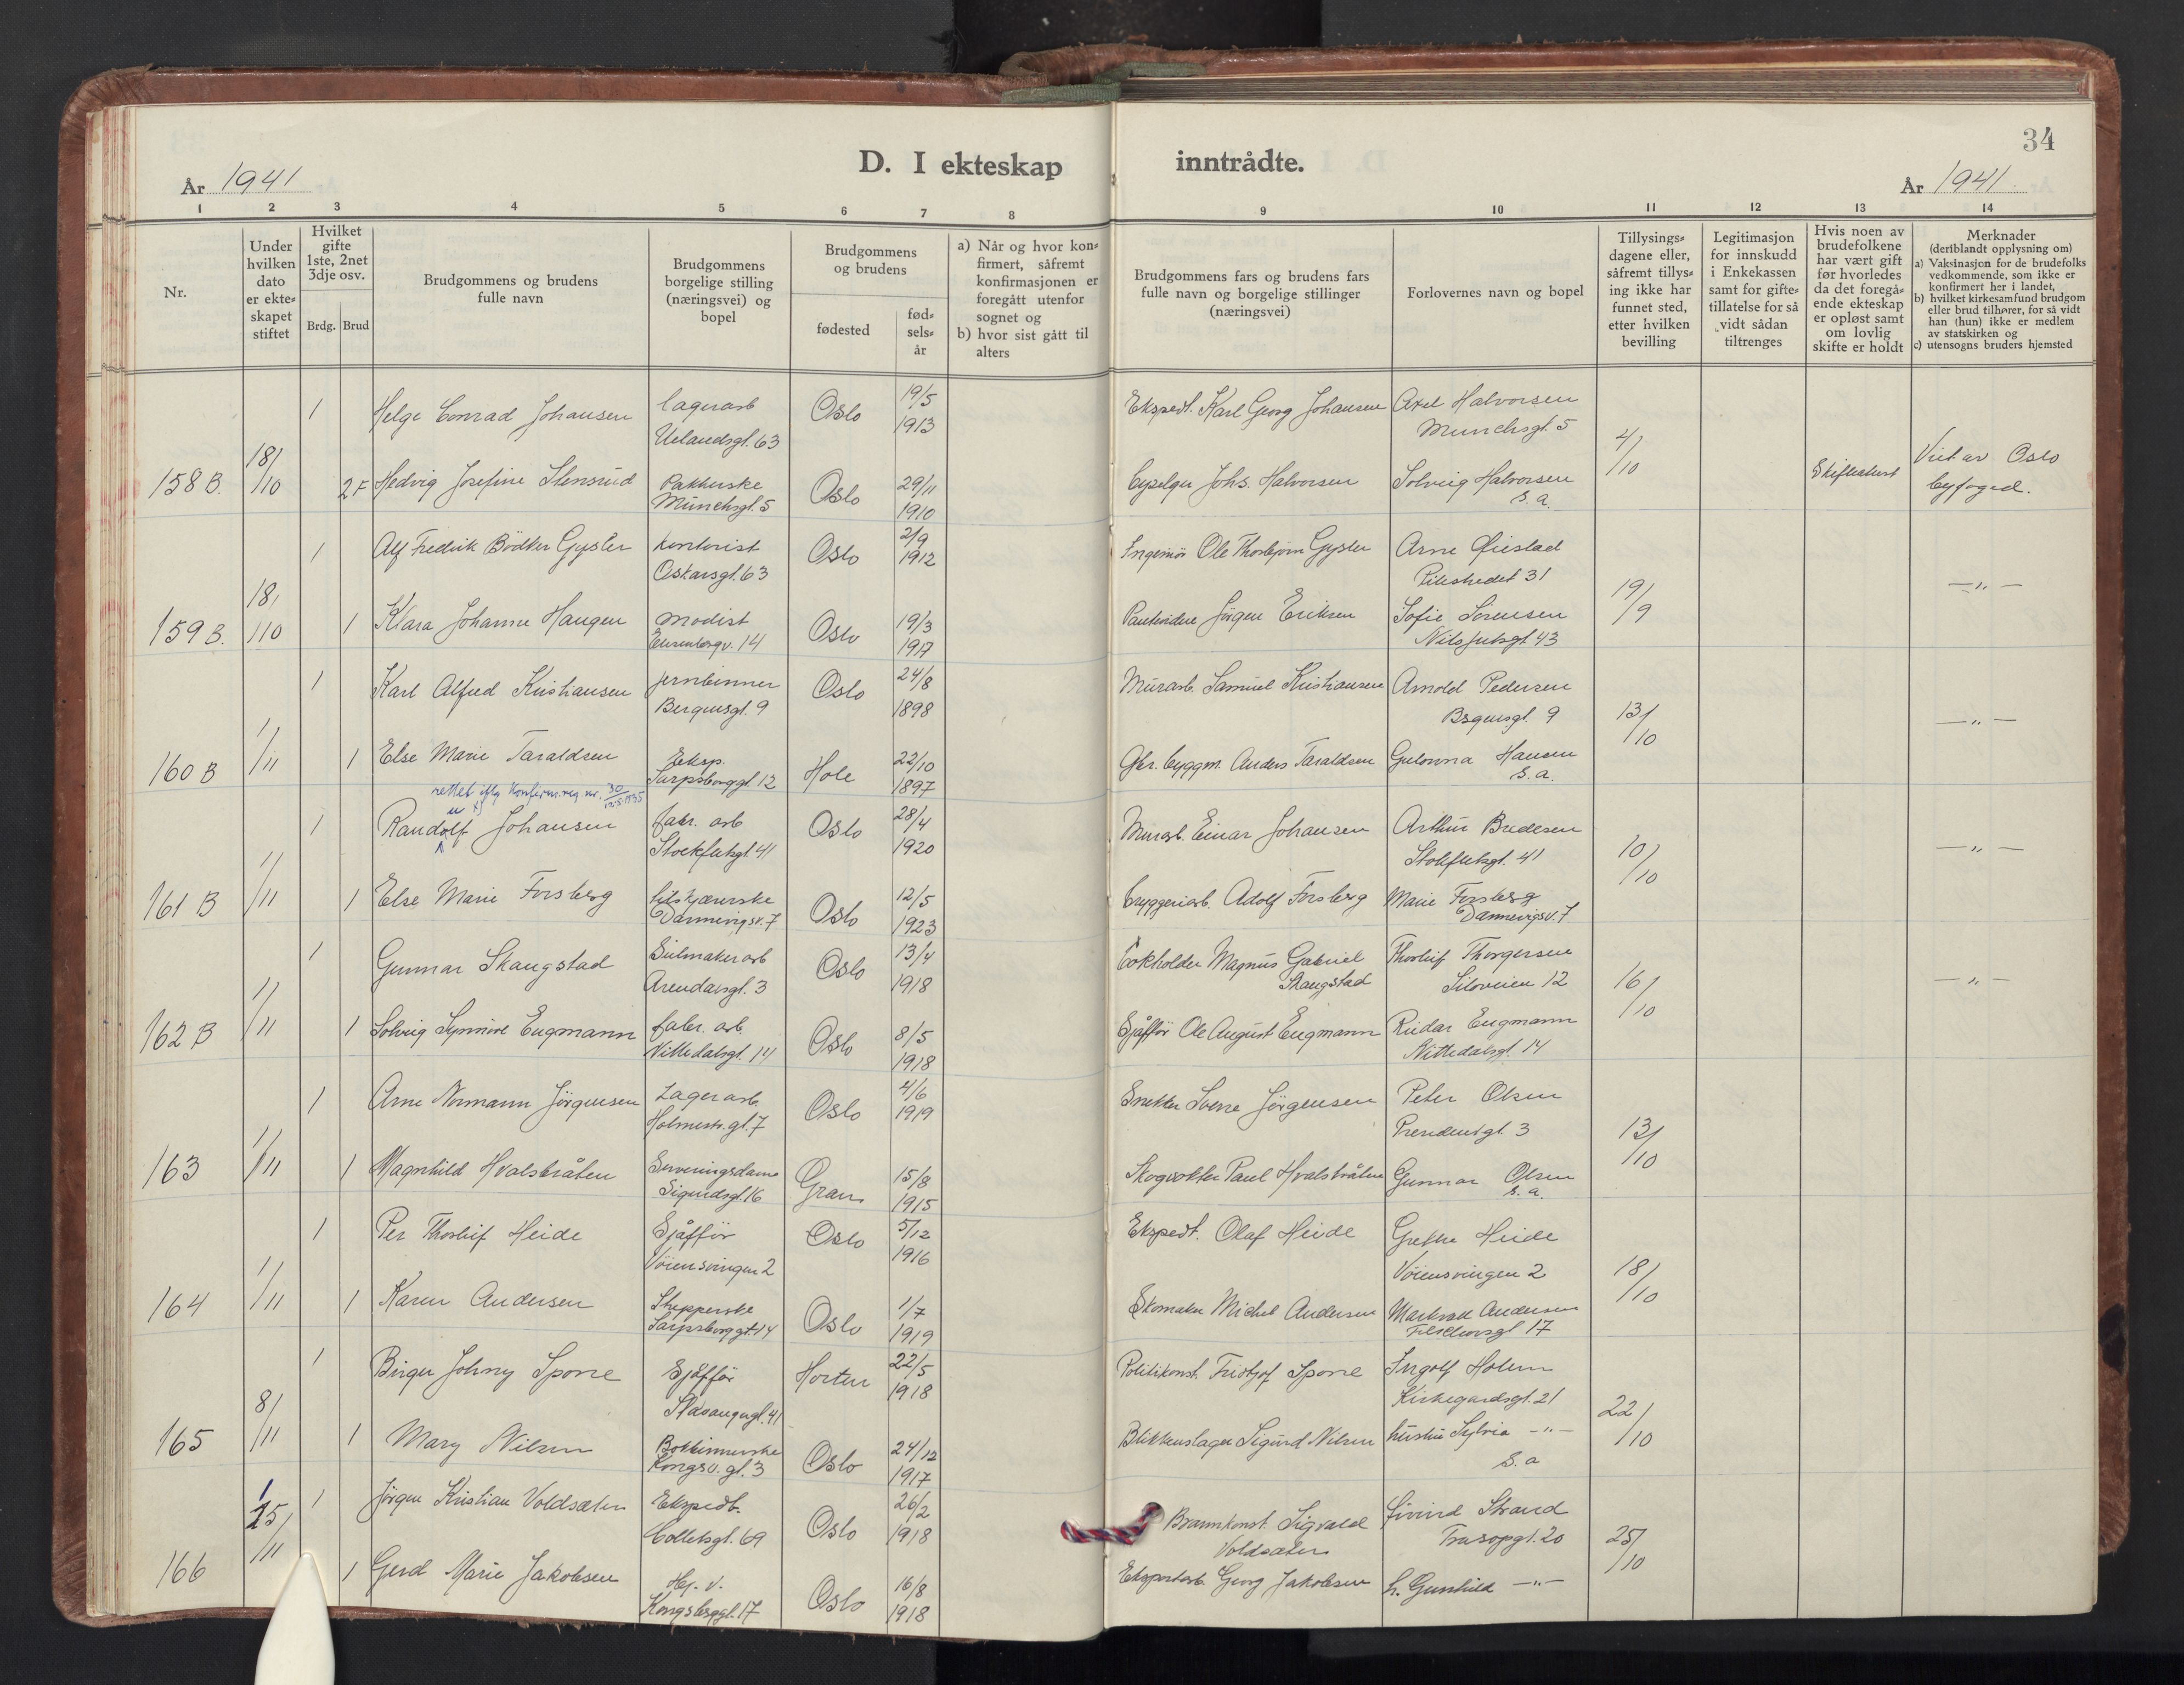 34
D. I ekteskap inntrådte.
År 1941
År 1941.
1 2 3 4 5 6 7 8 9 10 11 12 13 14
Nr.
Under hvilken dato er ekte= skapet stiftet
Hvilket gifte 1ste, 2net 3dje osv.
Brdg. Brud
Brudgommens og brudens fulle navn
Brudgommens borgelige stilling (næringsvei) og bopel
Brudgommens og brudens
fødested
fød= sels= år
a) Når og hvor kon= firmert, såfremt konfirmasjonen er foregått utenfor sognet og
b) hvor sist gått til alters
Brudgommens fars og brudens fars fulle navn og borgelige stillinger (næringsvei)
Forlovernes navn og bopel
Tillysings= dagene eller, såfremt tillys= ing ikke har funnet sted, etter hvilken bevilling
Legitimasjon for innskudd i Enkekassen samt for gifte= tillatelse for så vidt sådan tiltrenges
Hvis noen av brudefolkene har vært gift før hvorledes da det foregå= ende ekteskap er opløst samt om lovlig skifte er holdt
Merknader
(deriblandt opplysning om)
a) Vaksinasjon for de brudefolks vedkommende, som ikke er konfirmert her i landet,
b) hvilket kirkesamfund brudgom eller brud tilhører, for så vidt han (hun) ikke er medlem av statskirken og
c) utensogns bruders hjemsted
1 Helge Conrad Johansen lagerarb Oslo 19/5 Ekspedt. Karl Georg Johansen Axel Halvorsen
Uelandsgt. 63 1913 Munchsgt. 5
158 B. 18/10 2 F Hedvig Josefine Stensrud Pakkerske Oslo 29/11 Johs. Halvorsen Solveig Halvorsen 4/10 Skifteattest Viet av Oslo
Munchsgt. 5 1910 s.a. byfoged.
1 Alf Fredrik Bödker Gysler Kontorist Oslo 2/9 Ingeniör Ole Thorbjørn Gysler Arne Øiestad
Oskarsgt. 63 1912 Pilestredet 31 — " —
159 B. 18/10 1 Klara Johanne Haugen Modist Oslo 19/3 Jörgen Eriksen Sofie Sörensen 19/9
14 1917 Nils Juelsgt. 43
1 Karl Alfred Kristiansen jernbinner Oslo 24/8 Murarb. Samuel Kristiansen Arnold Pedersen
Bergensgt. 9 1898 9 — " —
160 B 1/11 1 Else Marie Taraldsen Eksp. Hole 22/10 Anders Taraldsen Hansen 13/10
Sarpsborggt. 12 1897 s.a.
rettet iflg Konfirm.reg. nr. 30
1 Randolf Johansen fabr. arb Oslo 28/4 Murarb. Einar Johansen Arthur Bredesen
Stockfletsgt. 41 1920 Stokfletsgt. 41 — " —
161 B 1/11 1 Else Marie Forsberg Oslo 12/5 bryggeriarb. Adolf Forsberg Marie Forsberg 10/10
Dannevigsv. 7 1923 Dannevigsv. 7
1 Gunnar Skaugstad Seilmakerarb Oslo 13/4 Bokholder Magnus Gabriel Thorleif Thorgersen
Arendalsgt. 3 1918 Skaugstad Siloveien 12 — " —
162 B 1/11 1 Solveig Synnöve Eugmann fabr. arb. Oslo 8/5 Sjåfför Ole August Eugmann Reidar Eugmann 16/10
Nittedalsgt. 14 1918 Nittedalsgt. 14
1 Arne Normann Jörgensen Lagerarb Oslo 4/6 Snekker Sverre Jörgensen Peter Olsen
Holmestr. gt. 7 1919 3
163 1/11 1 Magnhild Hvalsbråten Serveringsdame Gran 15/8 Skogvokter Paul Hvalsbråten Gunnar Olsen 13/10
Sigurdsgt. 16 1915 s.a.
1 Per Thorleif Heide Sjåfför Oslo 5/12 Ekspedt. Olaf Heide Grethe Heide
Vöiensvingen 2 1916 Vöiensvingen 2
164 1/11 1 Karen Andersen Stepperske Oslo 1/7 Skomaker Michel Andersen Andersen 18/10
Sarpsborggt. 14 1919 17
1 Birger Johny Sporre Sjåffør Horten 22/5 Politikonst. Fridtjof Sporre Ingolf Holum
Stavangergt. 41 1918 Kirkegårdsgt. 21
165 8/11 1 Mary Nilsen Bokbinnerske Oslo 24/12 Blikkenslager Sigurd Nilsen hustru Sylvia — " — 22/10
Kongsv. gt. 3 1917 s.a
1 Jörgen Kristian Voldsæter Ekspedt. Oslo 26/2 Brannkonst. Sigvald Eivind Strand
Colletsgt. 69 1918 Voldsæter Trasopgt. 20
166 15/11 1 Gerd Marie Jakobsen Hj. v. Oslo 16/8 Georg Jakobsen h. Gunhild — " — 25/10
Kongsberggt. 17 1918